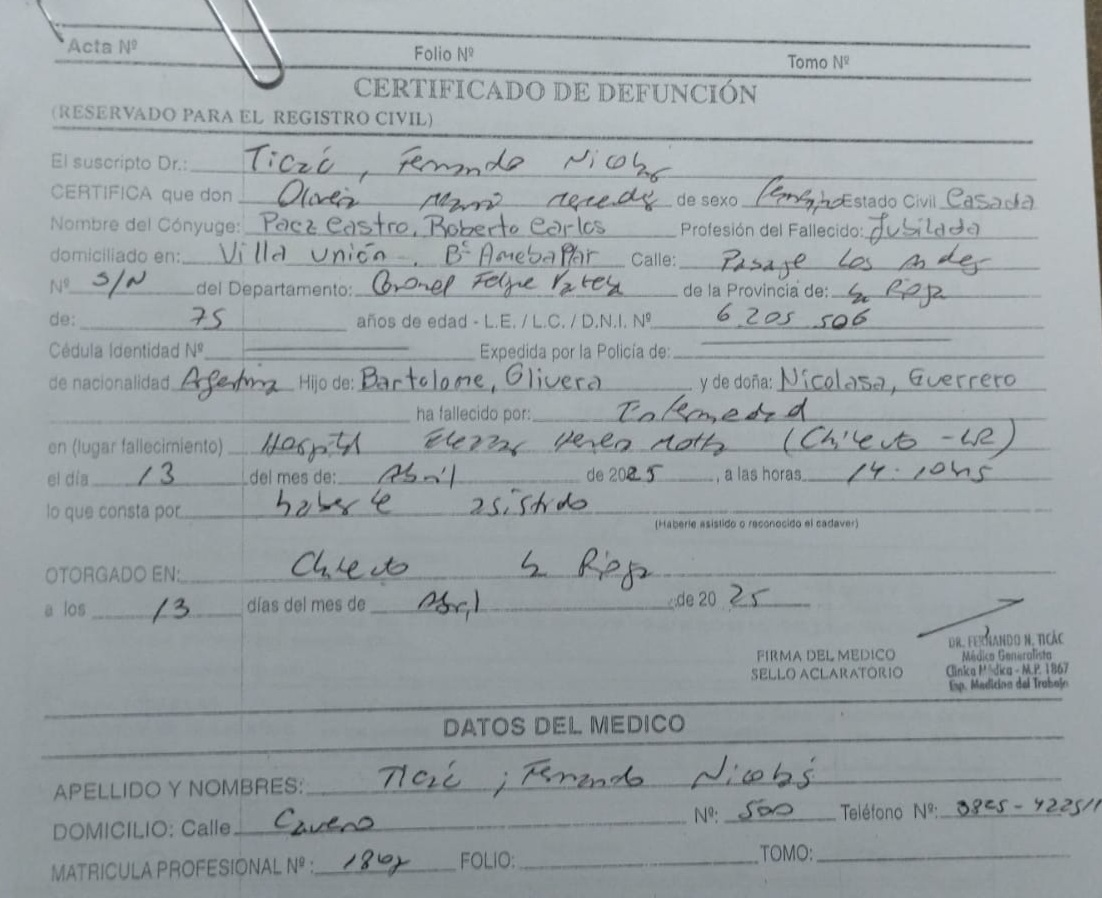 Acta Nº Folio Nº Tomo Nº
CERTIFICADO DE DEFUNCIÓN
(RESERVADO PARA EL REGISTRO CIVIL)
El suscripto Dr.: Ticác, Fernando Nicolás
CERTIFICA que don Olivera María Mercedes de sexo Femenino Estado Civil Casada
Nombre del Cónyuge: Paez Castro, Roberto Carlos Profesión del Fallecido: Jubilada
domiciliado en: Villa Unión, Bº Calle: Pasaje Los Andes
Nº S/N del Departamento: Coronel Felipe Varela de la Provincia de: La Rioja
de: 75 años de edad - L.E. / L.C. / D.N.I. Nº 6 205 506
Cédula Identidad Nº Expedida por la Policía de:
de nacionalidad Argentina Hijo de: Bartolome, Olivera y de doña: Nicolasa, Guerrero
ha fallecido por: Enfermedad
en (lugar fallecimiento) Hospital (Chilecito - LR)
el día 13 del mes de: Abril de 2025, a las horas 14:10hs
lo que consta por haberle asistido
(Haberle asistido o reconocido el cadaver)
OTORGADO EN: Chilecito La Rioja
a los 13 días del mes de Abril de 20 25
FIRMA DEL MEDICO
SELLO ACLARATORIO
DR. FERNANDO N. TICÁC
Médico Generalista
Clínica Médica - M.P. 1867
Esp. Medicina del Trabajo
DATOS DEL MEDICO
APELLIDO Y NOMBRES: Ticác ; Fernando Nicolás
DOMICILIO: Calle Nº: 500 Teléfono Nº:
MATRICULA PROFESIONAL Nº: 1867 FOLIO: TOMO: